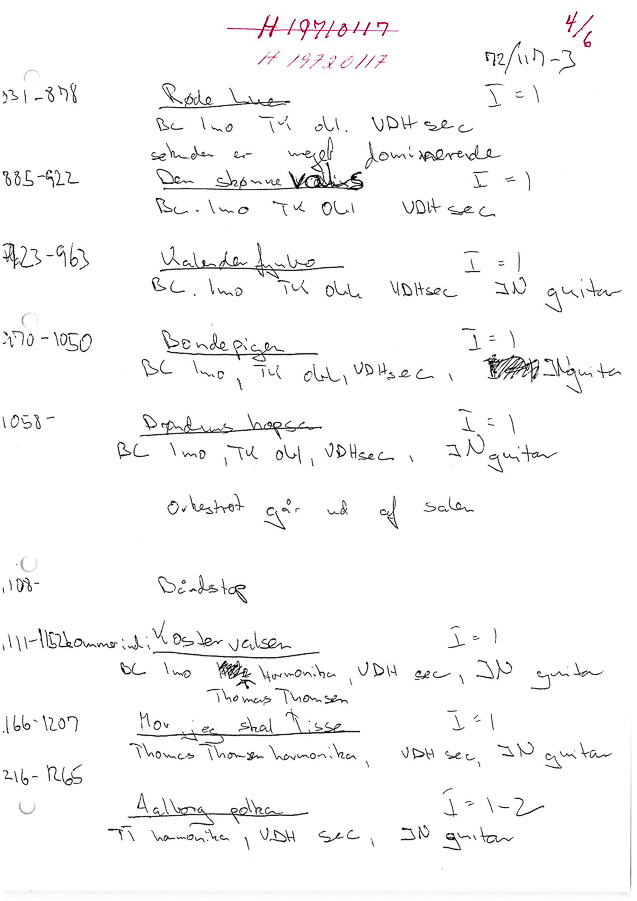 H 19710117
4/6
H 19720117
72/117-3
831-878 Røde Lue I = 1
BC 1mo TK obl. VDH sec
sekunden er meget dominerende
885-922 Den skønne Valiss I = 1
BC. 1mo TK obl VDH sec
923-963 Kalender fynbo I = 1
BC. 1mo TK obl. VDH sec IN guitar
970-1050 Bondepigen I = 1
BC 1mo, TK obl, VDH sec, IN guitar
1058- hopsa I = 1
BC 1mo, TK obl, VDH sec, IN guitar
Orkestret går ud af salen
1108- Båndstop
1111-1152 kommer ind i Kostervalsen I = 1
BC 1mo harmonika, VDH sec, IN guitar
Thomas Thomsen
1166-1207 Mor jeg skal Tisse I = 1
Thomas Thomsen harmonika, VDH sec, IN guitar
1216-1265
Aalborg polka I = 1-2
TT harmonika, VDH sec, IN guitar